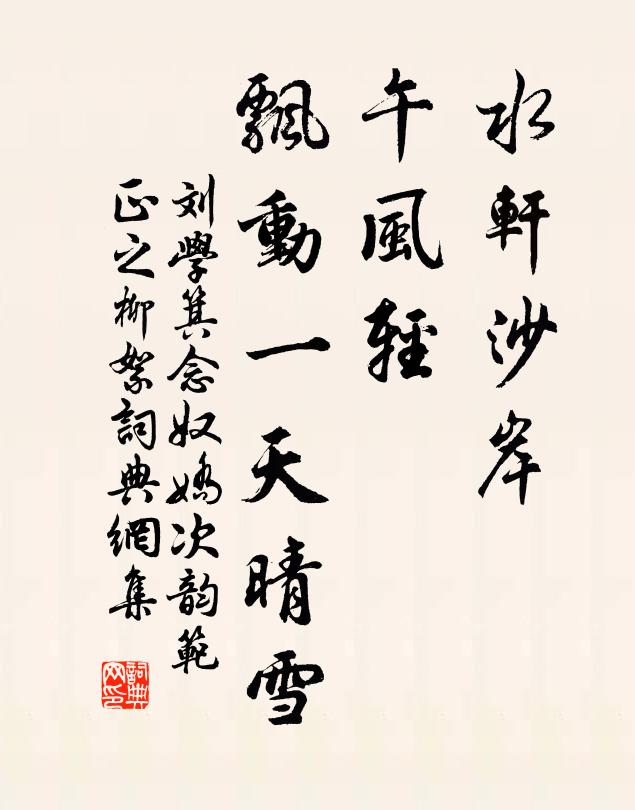 水軒沙岸
午風輕
飄動一天晴雪
刘學箕念奴嬌次韵範
正之柳絮詞典網集
詞典
网印